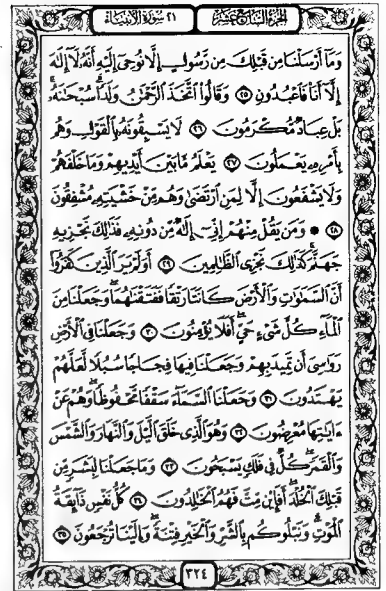 الجزء السابع عشر
٢١ سورة الأنبياء
وَمَآ أَرْسَلْنَا مِن قَبْلِكَ مِن رَّسُولٍ إِلَّا نُوحِىٓ إِلَيْهِ أَنَّهُۥ لَآ إِلَٰهَ
إِلَّآ أَنَا۠ فَٱعْبُدُونِ ٢٥ وَقَالُوا۟ ٱتَّخَذَ ٱلرَّحْمَٰنُ وَلَدًا ۗ سُبْحَٰنَهُۥ ۚ
بَلْ عِبَادٌ مُّكْرَمُونَ ٢٦ لَا يَسْبِقُونَهُۥ بِٱلْقَوْلِ وَهُم
بِأَمْرِهِۦ يَعْمَلُونَ ٢٧ يَعْلَمُ مَا بَيْنَ أَيْدِيهِمْ وَمَا خَلْفَهُمْ
وَلَا يَشْفَعُونَ إِلَّا لِمَنِ ٱرْتَضَىٰ وَهُم مِّنْ خَشْيَتِهِۦ مُشْفِقُونَ
٢٨ ۞ وَمَن يَقُلْ مِنْهُمْ إِنِّىٓ إِلَٰهٌ مِّن دُونِهِۦ فَذَٰلِكَ نَجْزِيهِ
جَهَنَّمَ ۚ كَذَٰلِكَ نَجْزِى ٱلظَّٰلِمِينَ ٢٩ أَوَلَمْ يَرَ ٱلَّذِينَ كَفَرُوٓا۟
أَنَّ ٱلسَّمَٰوَٰتِ وَٱلْأَرْضَ كَانَتَا رَتْقًا فَفَتَقْنَٰهُمَا ۖ وَجَعَلْنَا مِنَ
ٱلْمَآءِ كُلَّ شَىْءٍ حَىٍّ ۖ أَفَلَا يُؤْمِنُونَ ٣٠ وَجَعَلْنَا فِى ٱلْأَرْضِ
رَوَٰسِىَ أَن تَمِيدَ بِهِمْ وَجَعَلْنَا فِيهَا فِجَاجًا سُبُلًا لَّعَلَّهُمْ
يَهْتَدُونَ ٣١ وَجَعَلْنَا ٱلسَّمَآءَ سَقْفًا مَّحْفُوظًا ۖ وَهُمْ عَنْ
ءَايَٰتِهَا مُعْرِضُونَ ٣٢ وَهُوَ ٱلَّذِى خَلَقَ ٱلَّيْلَ وَٱلنَّهَارَ وَٱلشَّمْسَ
وَٱلْقَمَرَ ۖ كُلٌّ فِى فَلَكٍ يَسْبَحُونَ ٣٣ وَمَا جَعَلْنَا لِبَشَرٍ مِّن
قَبْلِكَ ٱلْخُلْدَ ۖ أَفَإِي۟ن مِّتَّ فَهُمُ ٱلْخَٰلِدُونَ ٣٤ كُلُّ نَفْسٍ ذَآئِقَةُ
ٱلْمَوْتِ ۗ وَنَبْلُوكُم بِٱلشَّرِّ وَٱلْخَيْرِ فِتْنَةً ۖ وَإِلَيْنَا تُرْجَعُونَ ٣٥
٣٢٤